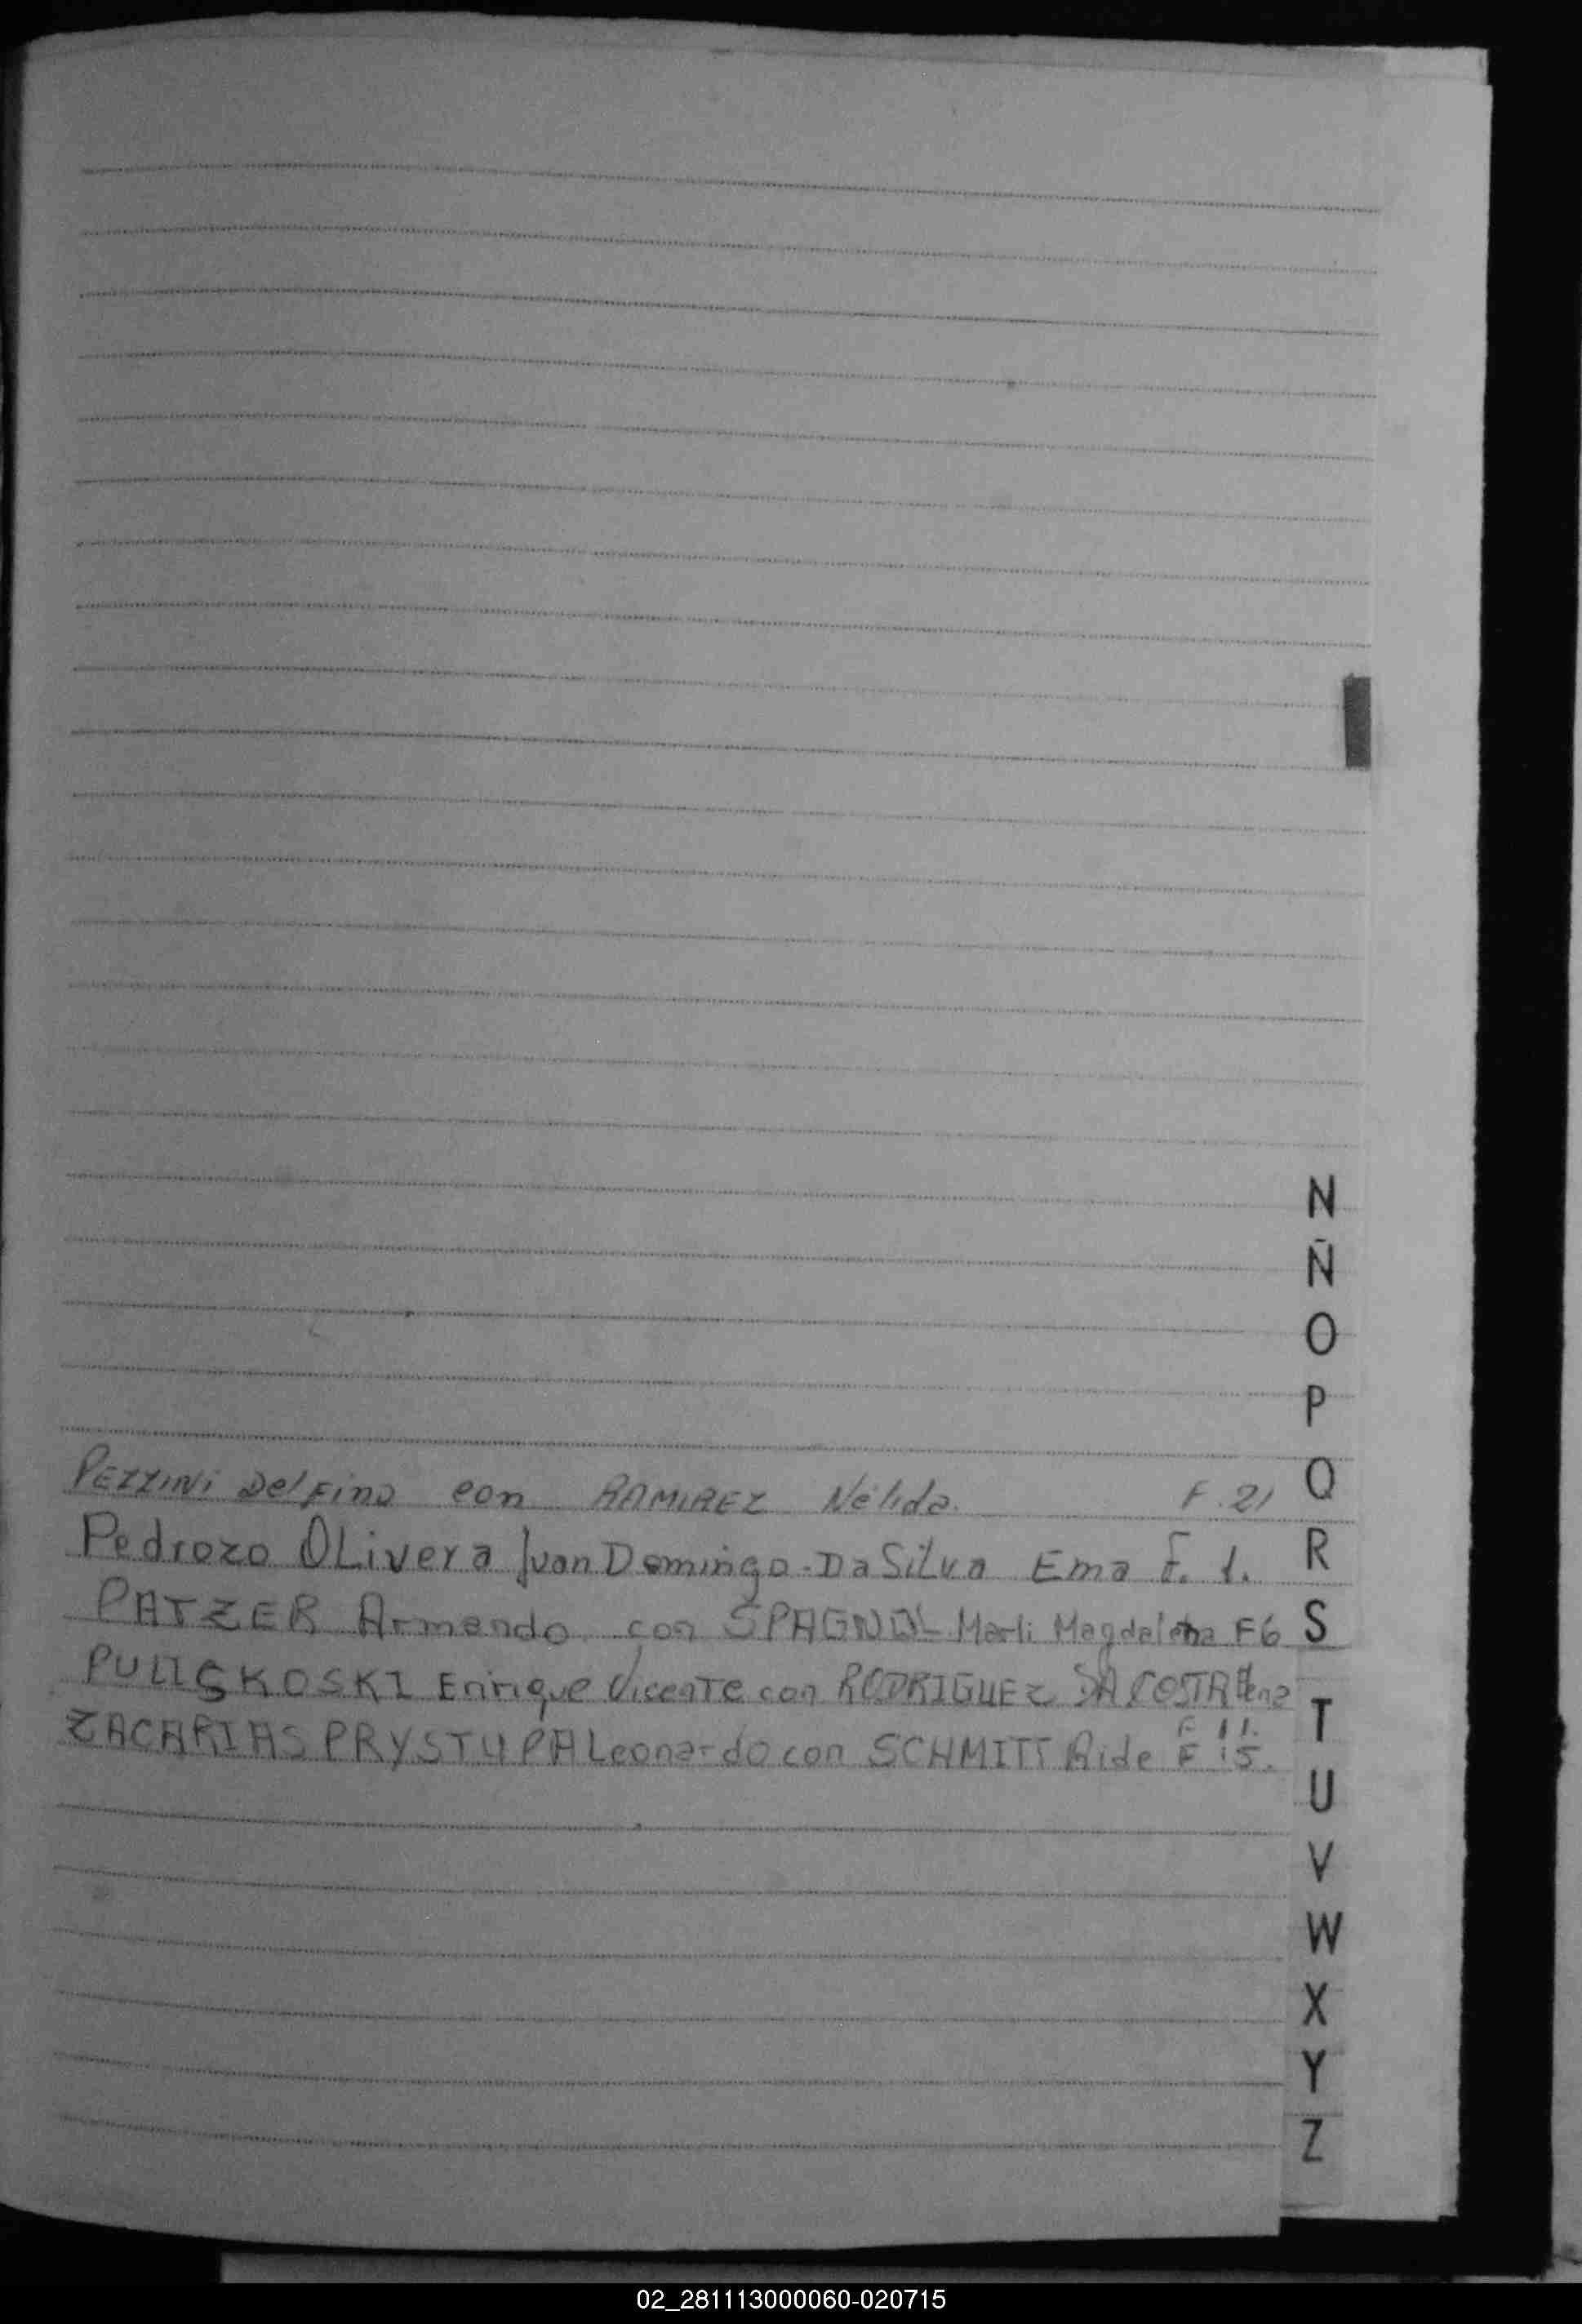 N
Ñ
O
P
Q
PEZZINI DelFino con RAMIREZ Nélida. F. 21
R
Pedrozo OLivera Juan Domingo - Da Silva Ema F. 1.
S
PATZER Armando con SPAGNOL Marli Magdalena F6
PULISKOSKI Enrique Vicente con RODRIGUEZ DA COSTA Elena
T
F 11.
ZACARIAS PRYSTUPA Leonardo con SCHMITT Aide F 15.
U
V
W
X
Y
Z
02_281113000060-020715